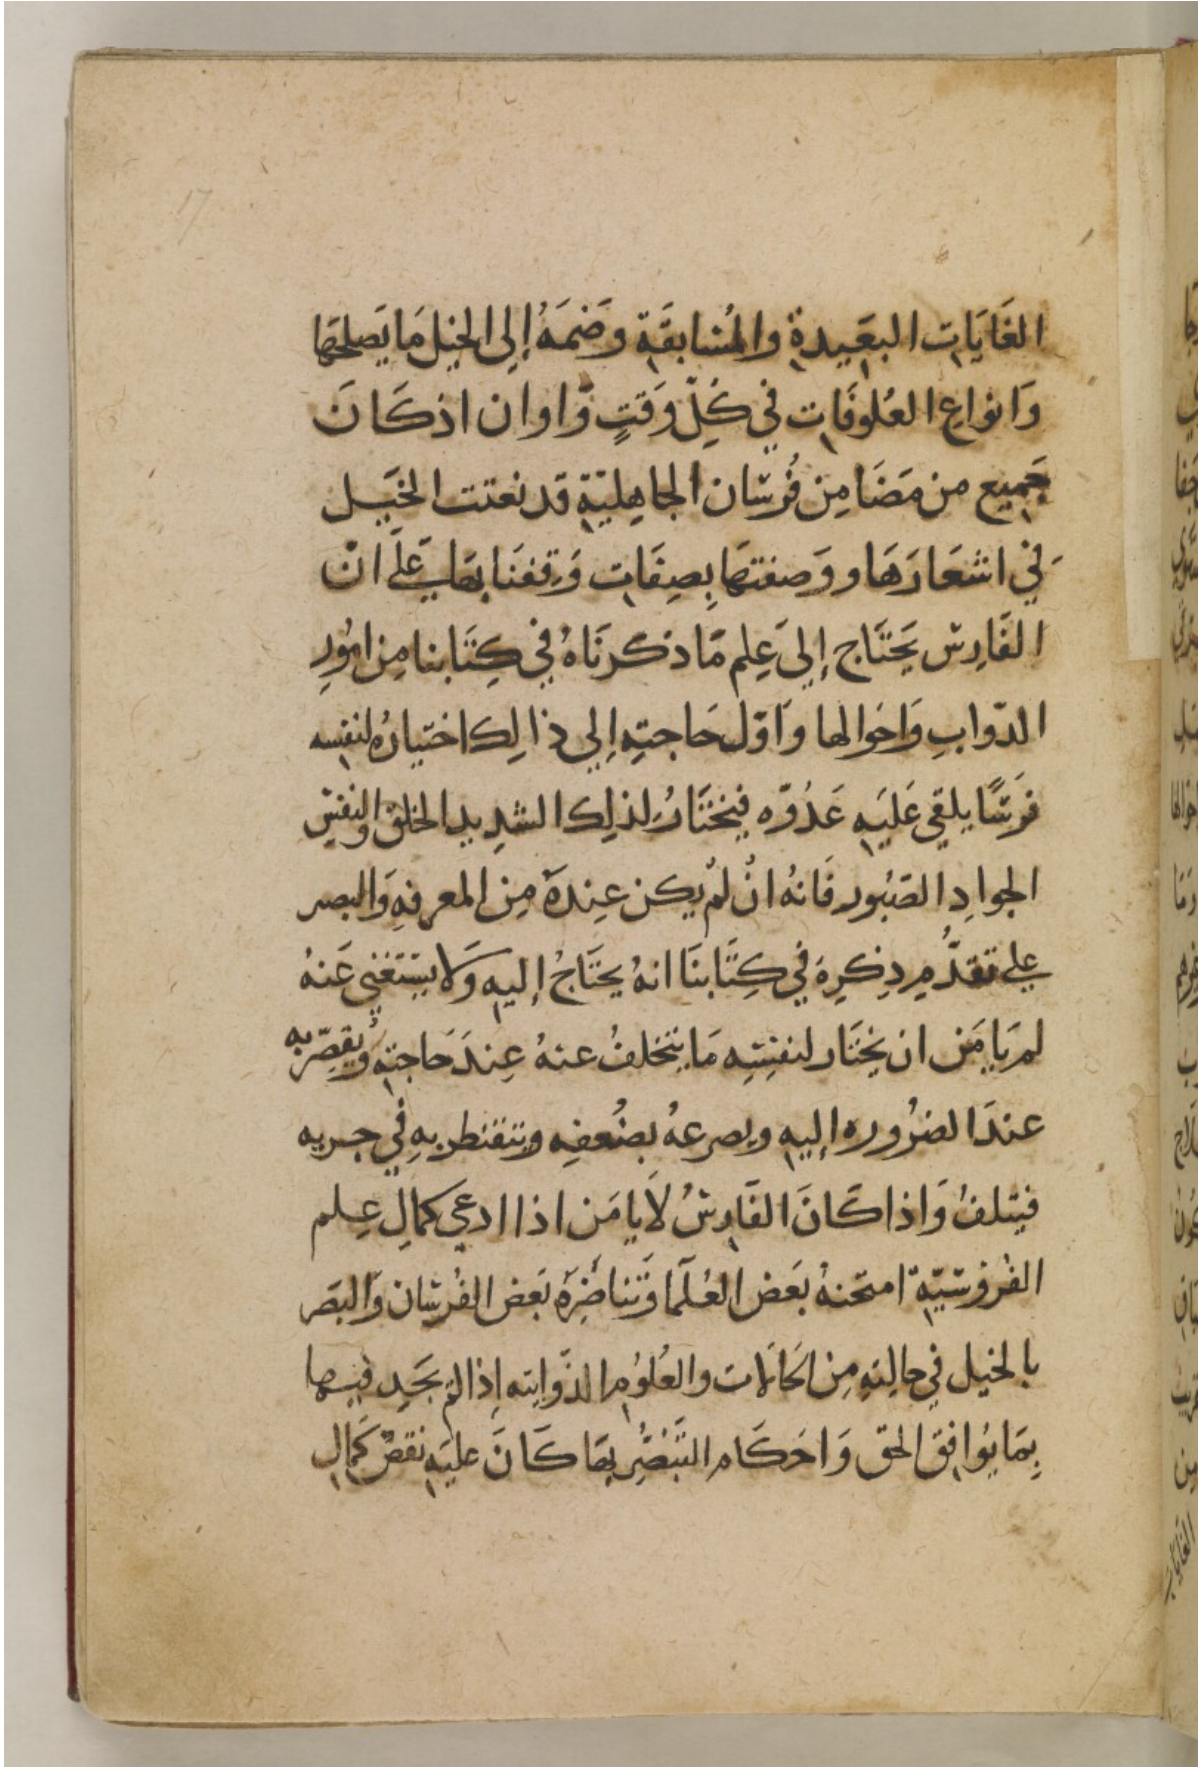 17
الغَايَات البعَيدة والمُسَابقَة وضَمَهُ إلى الخيل مَا يَصلحَهَا
وَانواع العُلوفَات في كُلّ وَقتٍ وَاوان اذ كَانَ
جَميع من مَضَا مِن فُرسَان الجاهِليّة قد نعتت الخيَل
في اشعَارَهَا ووَصفتهَا بِصِفَات وَقِفنَا بهَا عَلَى انّ
الفَارِس يَحتَاج إلىَ عِلم مَا ذكرنَاهُ في كِتَابنا مِن امُورِ
الدّوابِ وَاحَوالها وَاوّل حَاجتهِ إلي ذالِك اختيارُه لنفسه
فَرسًا يلقي عَليَه عَدُوّه فيختَارُ لذلِك الشدِيد الخلق والنفس
الجوادِ الصَبُور فَانهُ انْ لمْ يكن عِندَهُ مِن المعرفهِ وَالبصر
علي تقدُّم ذِكِرِهَ في كِتَابنَا انهُ يحتَاجُ إليهِ وَلا يستغني عَنهُ
لم يَا مَن ان يختَار لنفسِه مَا يتخلفُ عنهُ عِندَ حَاجتهِ وُيقصِّر به
عندَ الضرُوره إليهِ ويصرعهُ بضُعفِه ويتقنطر بهِ في جريه
فيتلفُ وَاذا كَانَ الفَارسُ لَا يا مَن اذا ادعي كمالِ عِلم
الفُروسّية امتحنهُ بعَض العُلَما وَتناضَرَهُ بعَض الفُرسَان وَالبصَر
بالخيل في حالِتهِ مِن الحَالات والعُلوُم الذوَاتِه إذا لم يجَد فيها
بِمَا يُوافِق الحق وَاحَكَام التَبَصُّرِ بهَا كَانَ عليَه نقصٌ كَمال